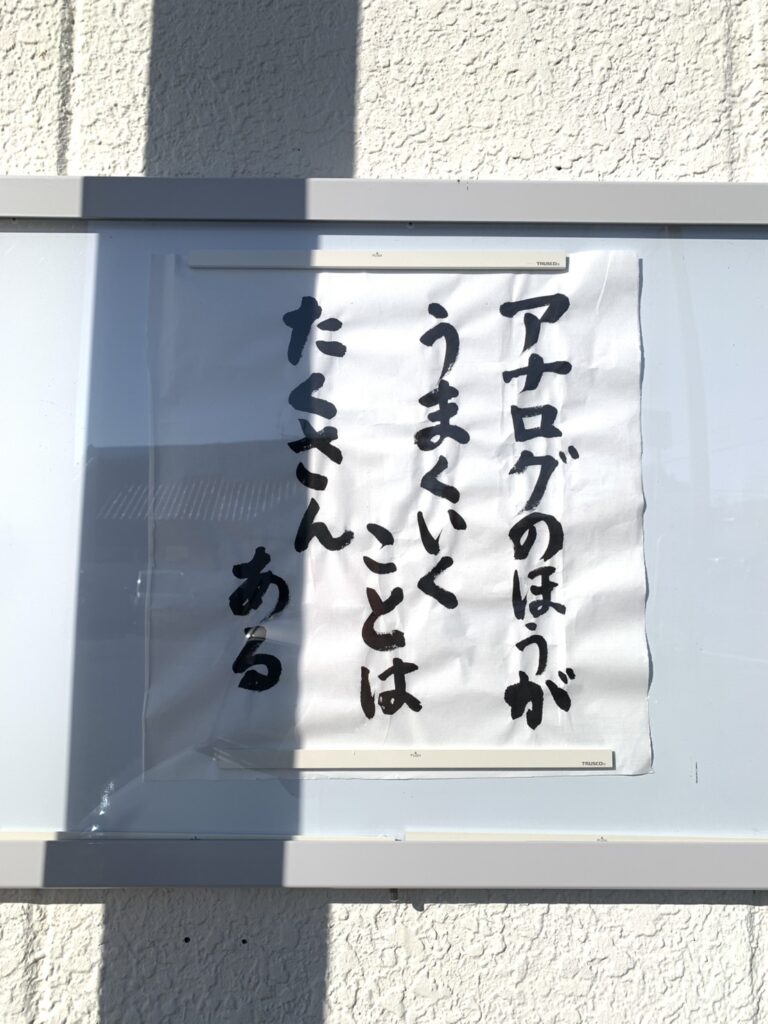 アナログのほうが
うまくいく
ことは
たくさん
ある
TRUSCO
TRUSCO